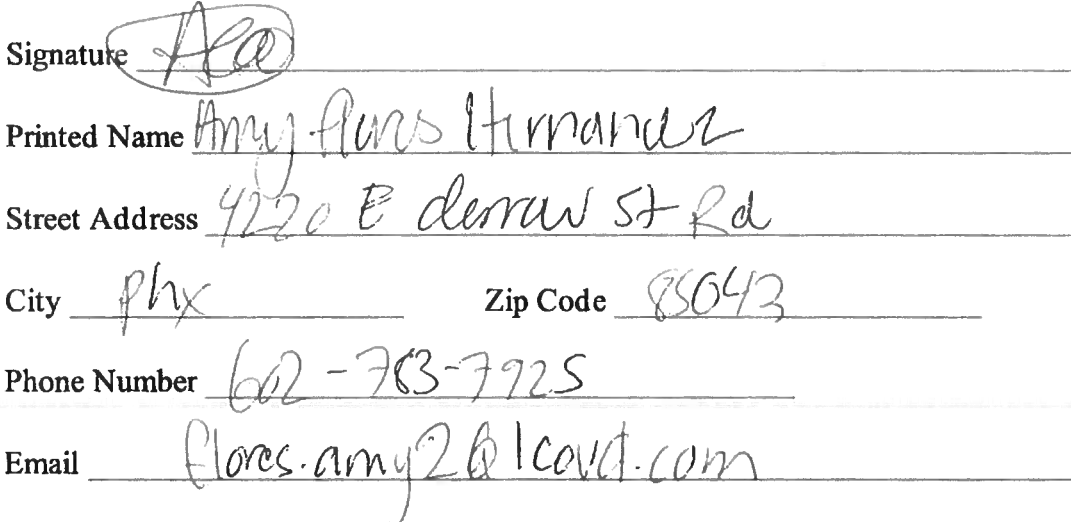 Signature
Printed Name Amy flores Hernandez
Street Address 4220 E St Rd
City phx Zip Code 85043
Phone Number 602-783-7925
Email flores.amy2@icoud.com